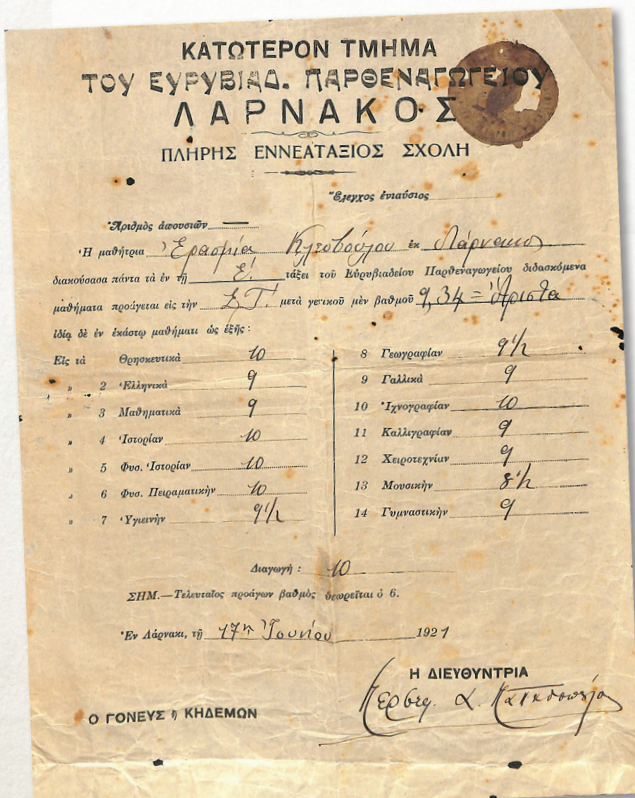 ΚΑΤΩΤΕΡΟΝ ΤΜΗΜΑ
ΤΟΥ ΕΥΡΥΒΙΑΔ. ΠΑΡΘΕΝΑΓΩΓΕΙΟΥ
ΛΑΡΝΑΚΟΣ
ΠΛΗΡΗΣ ΕΝΝΕΑΤΑΞΙΟΣ ΣΧΟΛΗ
Ἔλεγχος ἐνιαύσιος
Ἀριθμὸς ἀπουσιῶν —
Ἡ μαθήτρια Ἐρασμία Κλεοβούλου ἐκ Λάρνακος
διακούσασα πάντα τὰ ἐν τῇ Ε΄. τάξει τοῦ Εὐρυβιαδείου Παρθεναγωγείου διδασκόμενα
μαθήματα προάγεται εἰς τὴν ΣΤ΄. μετὰ γενικοῦ μὲν βαθμοῦ 9,34 = Ἄριστα
ἰδίᾳ δὲ ἐν ἑκάστῳ μαθήματι ὡς ἑξῆς:
Εἰς τὰ Θρησκευτικὰ 10
» 2 Ἑλληνικὰ 9
» 3 Μαθηματικὰ 9
» 4 Ἱστορίαν 10
» 5 Φυσ. Ἱστορίαν 10
» 6 Φυσ. Πειραματικὴν 10
» 7 Ὑγιεινὴν 9 1/2
8 Γεωγραφίαν 9 1/2
9 Γαλλικὰ 9
10 Ἰχνογραφίαν 10
11 Καλλιγραφίαν 9
12 Χειροτεχνίαν 9
13 Μουσικὴν 8 1/2
14 Γυμναστικὴν 9
Διαγωγή: 10
ΣΗΜ.—Τελευταῖος προάγων βαθμὸς θεωρεῖται ὁ 6.
Ἐν Λάρνακι, τῇ 17ῃ Ἰουνίου 1921
Η ΔΙΕΥΘΥΝΤΡΙΑ
Ο ΓΟΝΕΥΣ ἢ ΚΗΔΕΜΩΝ